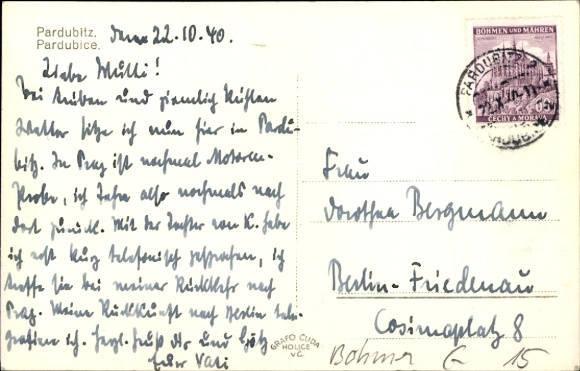 Pardubitz.
Pardubice.
den 22.10.40.
Liebe Mutti!
Bei trüben und ziemlich kühlen
Wetter sitze ich nun hier in Pardu-
bitz. In Prag ist nochmal Motoren-
Probe, ich fahre also nochmals nach
dort zurück. Mit der Tochter von K. habe
ich erst kurz telefonisch gesprochen, ich
treffe sie bei meiner Rückkehr nach
Prag. Meine Rückkunft nach Berlin tele-
grafiere ich. Herzl. Gruß Dir und Götz
Euer Vati
BÖHMEN UND MÄHREN
ČECHY A MORAVA
PARDUBITZ 2
Frau
Dorothea Bergmann
Berlin-Friedenau
Cosimaplatz 8
GRAFO ČUDA
HOLICE
v.Č.
Böhmer
15